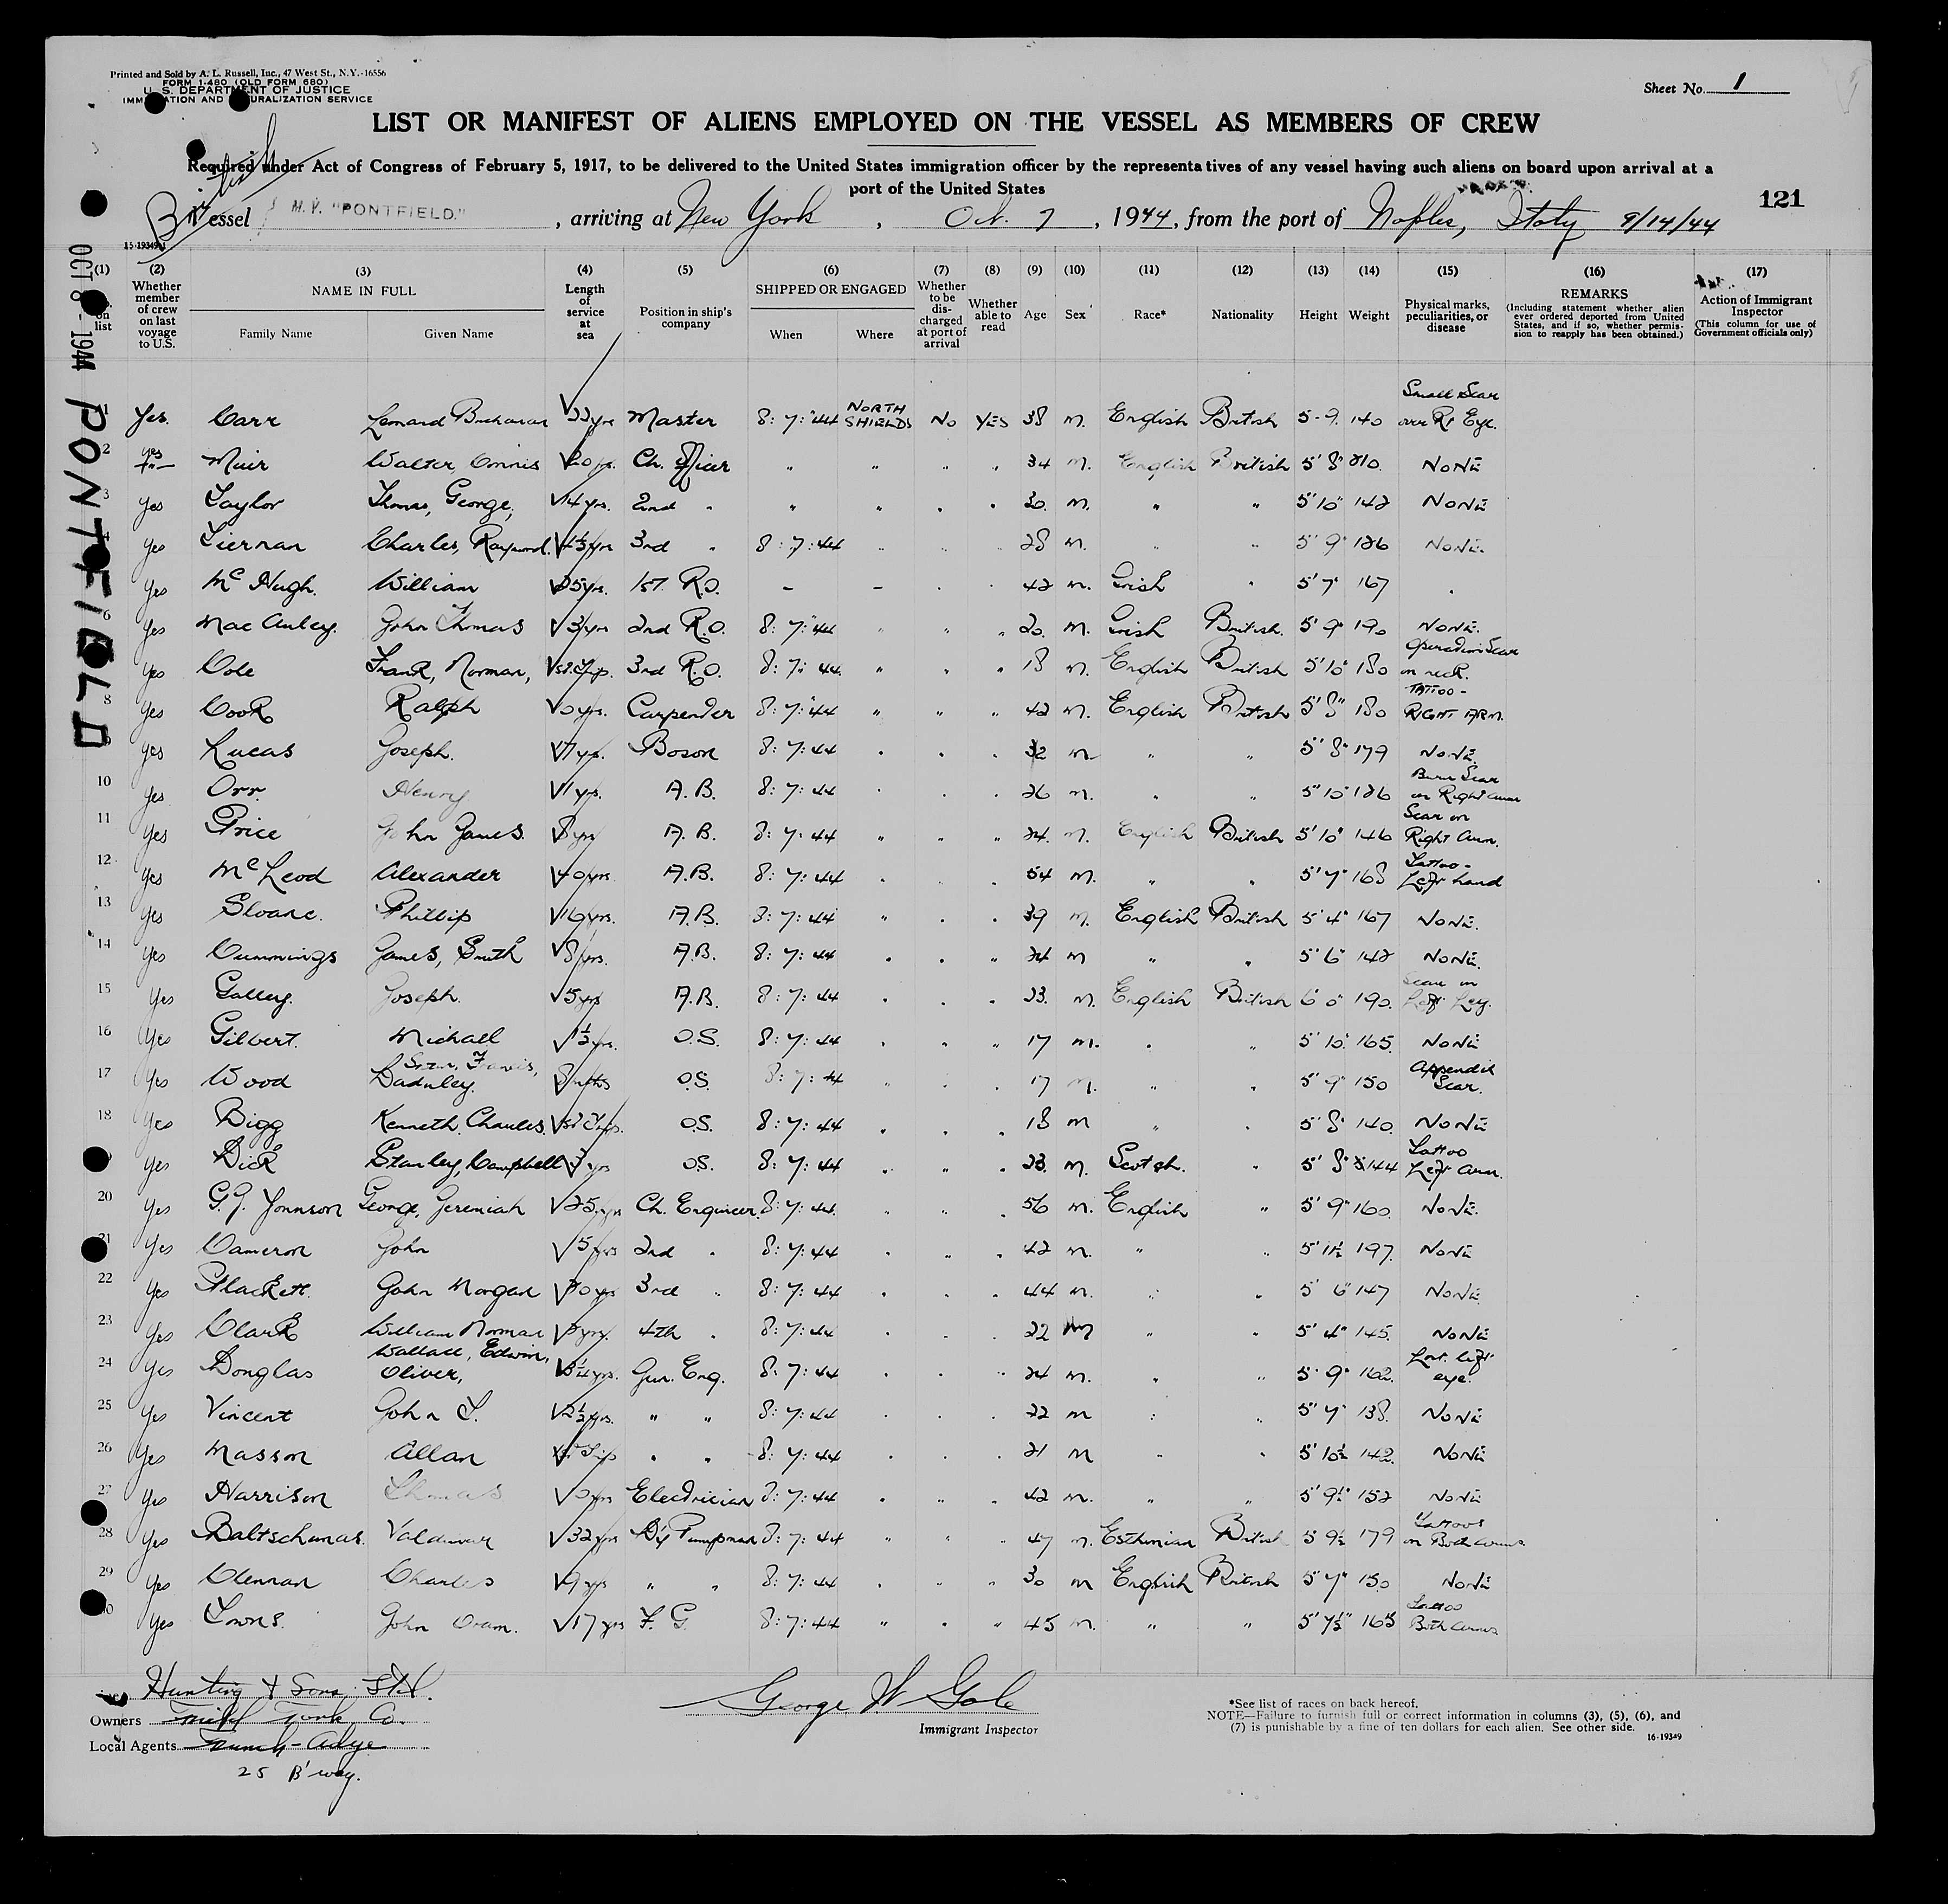 Printed and Sold by A. L. Russell, Inc., 47 West St., N.Y.-16556
FORM 1-480 (OLD FORM 680)
U. S. DEPARTMENT OF JUSTICE
IMM ATION AND URALIZATION SERVICE
Sheet No. 1
LIST OR MANIFEST OF ALIENS EMPLOYED ON THE VESSEL AS MEMBERS OF CREW
Required under Act of Congress of February 5, 1917, to be delivered to the United States immigration officer by the representatives of any vessel having such aliens on board upon arrival at a
port of the United States
121
Vessel M.V. "PONTFIELD." , arriving at New York , Oct. 7 , 1944, from the port of Naples, Italy 9/14/44
15-19349-1
OCT 8 - 1944 PONTFIELD
(1) (2) (3) (4) (5) (6) (7) (8) (9) (10) (11) (12) (13) (14) (15) (16) (17)
on list
Whether member of crew on last voyage to U.S.
NAME IN FULL
Family Name Given Name
Length of service at sea
Position in ship's company
SHIPPED OR ENGAGED
When Where
Whether to be discharged at port of arrival
Whether able to read
Age Sex Race* Nationality Height Weight
Physical marks, peculiarities, or disease
REMARKS
(Including statement whether alien ever ordered deported from United States, and if so, whether permission to reapply has been obtained.)
Action of Immigrant Inspector
(This column for use of Government officials only)
1 Yes. Carr Leonard Buchanan 22 yrs Master 8:7:44 NORTH SHIELDS No YES 38 m. English British 5-9. 140 Small Scar over Rt Eye.
2 yes Muir Walter, 20 yrs. Ch. Officer " " " " 34 m. English British 5' 8" 210. NONE
3 yes Taylor Thomas, George, 14 yrs. 2nd " " " " " 30. m. " " 5'10" 142 NONE
4 yes Tiernan Charles, Raymond. 3rd " 8:7:44 " " " 28 m. " " 5' 9" 126 NONE.
Yes McHugh. William 25 yrs. 1st R.O. - - " " 42 m. Irish " 5'7" 167
6 Yes MacAuley. John Thomas 3 yrs 2nd R.O. 8:7:44 " " " 20. m. Irish British. 5' 9" 190 NONE.
Yes Cole Frank, Norman, 1st Trip. 3rd R.O. 8:7:44. " " " 18 m. English British 5'10" 180 Operation Scar on neck.
8 Yes Cook Ralph Carpender 8:7:44 " " " 42 m. English British 5' 8" 180 TATTOO - RIGHT ARM.
9 yes Lucas Joseph. Boson 8:7:44 " " " 32 m " " 5' 8" 179 NONE.
10 Yes Orr. Henry A.B. 8:7:44 " " " 26 m. " " 5'10" 126 Burn Scar on Right arm
11 Yes Price John James 8 yrs A.B. 8:7:44 " " " 24. m. English British 5'10" 146 Scar on Right Arm.
12 yes McLeod Alexander A.B. 8:7:44 " " " 54 m. " " 5'7" 168 Tattoo - Left hand
13 yes Sloane. Phillip 16 yrs. A.B. 8:7:44 " " " 39 m. English British 5' 4" 167 NONE.
14 yes Cummings James, Smith 8 yrs. A.B. 8:7:44 " " " 24 m " " 5' 6" 142 NONE.
15 Yes Galley. Joseph. 5 yrs A.B. 8:7:44 " " " 23. m. English British 6' 0" 190. Scar on Left Leg.
16 Yes Gilbert. Michael 1½ yrs. O.S. 8:7:44 " " " 17 m. " " 5' 10" 165. NONE
17 Yes Wood 8 mths O.S. 8:7:44 " " " 17 m. " " 5' 9" 150 Appendix Scar.
18 Yes Bigg Kenneth Charles. 1st Trip. O.S. 8:7:44 " " " 18 m " " 5' 8" 140. NONE
Yes Dick Stanley, Campbell 3 yrs O.S. 8:7:44 " " " 23. m. Scotch. " 5' 8" 144 Tattoo Left Arm.
20 Yes G.J. Johnson George, Jeremiah 25 yrs Ch. Engineer. 8:7:44. " " " 56 m. English " 5' 9" 160. NONE.
21 Yes Cameron John 5 yrs 2nd " 8:7:44 " " " 42 m. " " 5'11½ 197. NONE
22 Yes Plackett. John Morgan 3rd " 8:7:44 " " " 44 m. " " 5' 6" 147 NONE
23 Yes Clark William Norman 4th " 8:7:44 " " " 22 m " " 5' 4" 145. NONE
24 Yes Douglas Wallace, Edwin, Oliver, Jun. Eng. 8:7:44 " " " 24 m. " " 5' 9" 162. Lost left eye.
25 Yes Vincent John 2½ yrs. " " 8:7:44 " " " 22 m " " 5' 7" 138. NONE
26 Yes Masson Allan 1st Trip " " 8:7:44 " " " 21 m " " 5'10½ 142. NONE
27 Yes Harrison Thomas Electrician 8:7:44 " " " 42 m. " " 5'9½" 152 NONE
28 Yes Baltschunas. Valdimar 32 yrs Pumpman 8:7:44 " " " 47 m. Esthonian British 5 9½ 179 Tattoos on Both arms
29 Yes Clennan Charles 9 yrs " " 8:7:44 " " " 30 m English British 5'7" 150 NONE
Yes Towns. John Oram. 17 yrs F. G. 8:7:44 " " " 45 m. " " 5'7½" Tattoo Both arms
Hunting & Sons, Ltd.
Owners
Local Agents
25 B'way.
George W Gale
Immigrant Inspector
*See list of races on back hereof.
NOTE—Failure to furnish full or correct information in columns (3), (5), (6), and
(7) is punishable by a fine of ten dollars for each alien. See other side.
16-19349